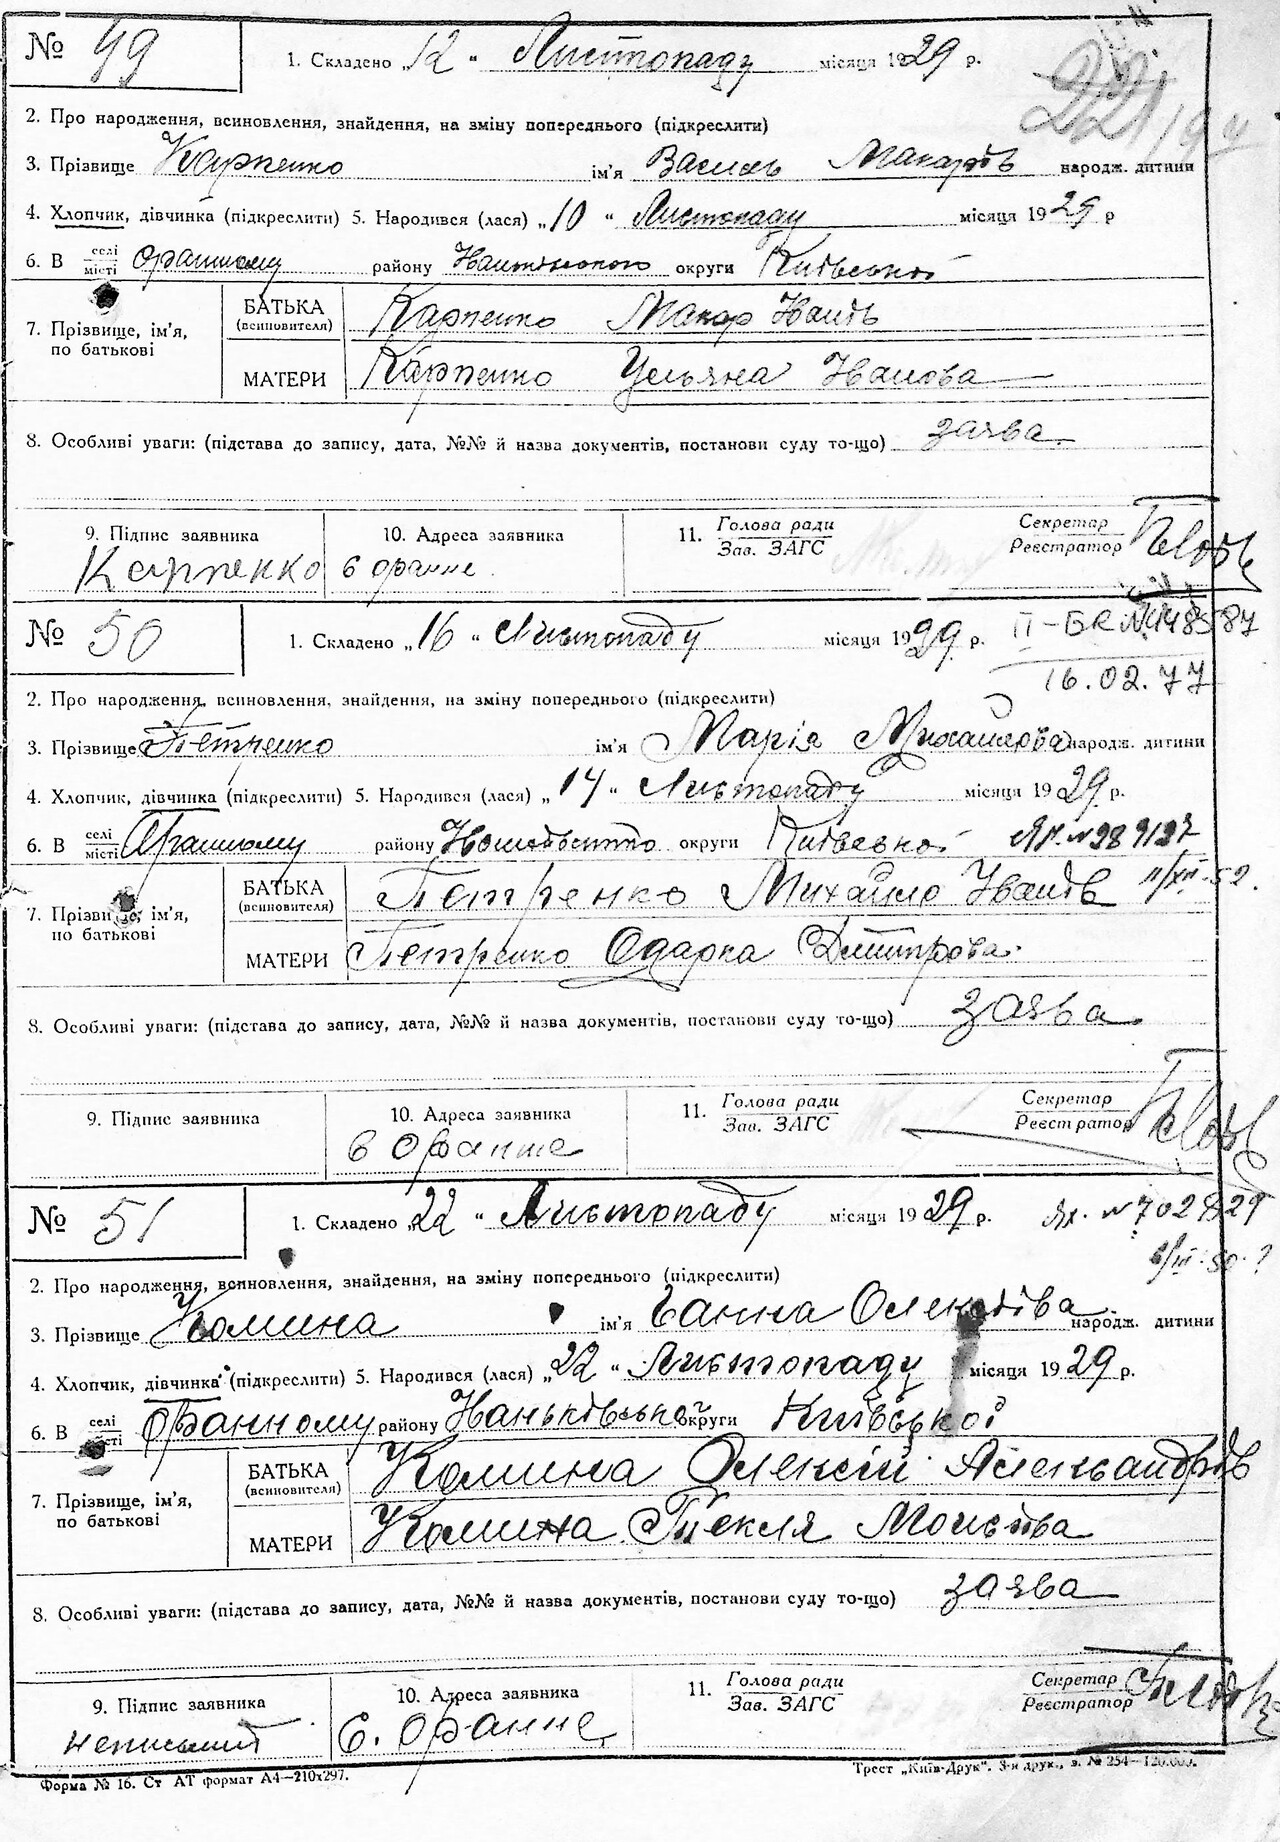 № 49
1. Складено „12 “ Листопаду місяця 1929 р.
221/9
2. Про народження, всиновлення, знайдення, на зміну попереднього (підкреслити)
3. Прізвище Карпенко ім'я Василь Макарів народж. дитини
4. Хлопчик, дівчинка (підкреслити) 5. Народився (лася) „10 “ Листопаду місяця 1929 р
6. В селі місті Оранному району округи Київської
7. Прізвище, ім'я, по батькові
БАТЬКА (всиновителя) Карпенко Макар Іванів
МАТЕРИ Карпенко Ульяна Іванова
8. Особливі уваги: (підстава до запису, дата, №№ й назва документів, постанови суду то-що) заява
9. Підпис заявника Карпенко
10. Адреса заявника с Оранне.
11. Голова ради Зав. ЗАГС
Секретар Реєстратор
№ 50
1. Складено „16 “ Листопаду місяця 1929 р.
II-БК № 478587
16.02.77
2. Про народження, всиновлення, знайдення, на зміну попереднього (підкреслити)
3. Прізвище Петренко ім'я Марія Михайлова народж. дитини
4. Хлопчик, дівчинка (підкреслити) 5. Народився (лася) „14 “ Листопаду місяця 1929 р.
6. В селі місті Оранному району округи Київської
11/XII-52.
7. Прізвище, ім'я, по батькові
БАТЬКА (всиновителя) Петренко Михайло Іванів
МАТЕРИ Петренко Одарка Дмитрова
8. Особливі уваги: (підстава до запису, дата, №№ й назва документів, постанови суду то-що) заява
9. Підпис заявника
10. Адреса заявника с Оранне
11. Голова ради Зав. ЗАГС
Секретар Реєстратор
№ 51
1. Складено „22 “ Листопаду місяця 1929 р.
2. Про народження, всиновлення, знайдення, на зміну попереднього (підкреслити)
3. Прізвище Комина ім'я Ганна Олексіїва народж. дитини
4. Хлопчик, дівчинка (підкреслити) 5. Народився (лася) „22 “ Листопаду місяця 1929 р.
6. В селі місті Оранному району округи Київської
7. Прізвище, ім'я, по батькові
БАТЬКА (всиновителя) Комина Олексій Александрів
МАТЕРИ Комина Текля
8. Особливі уваги: (підстава до запису, дата, №№ й назва документів, постанови суду то-що) заява
9. Підпис заявника неписьмий
10. Адреса заявника С. Оранне
11. Голова ради Зав. ЗАГС
Секретар Реєстратор
Форма № 16. Ст АТ формат А4—210х297.
Трест „Київ-Друк“. 3-я друк., з. № 254—120.000.